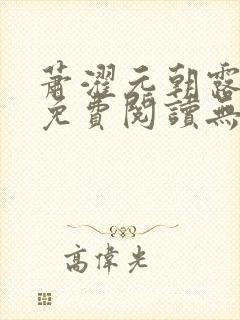 蕭濯元朝露
免費閱讀無
高偉光